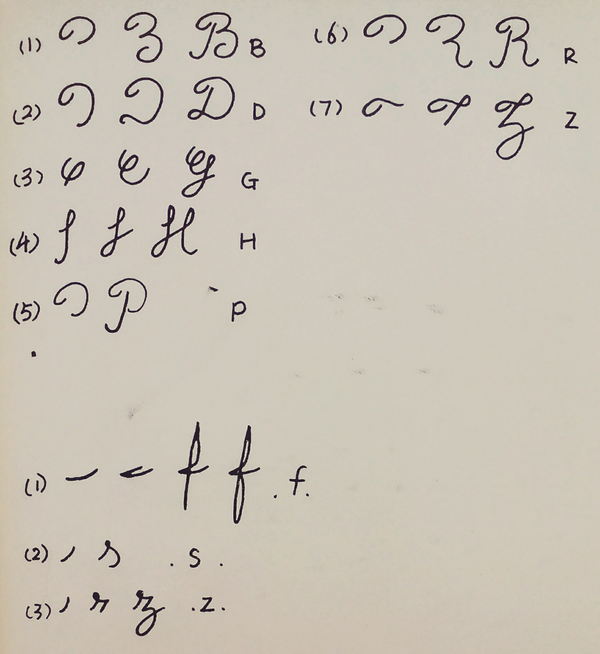 (1) B B
(2) D D
(3) G G
(4) H H
(5) P P
(6) R R
(7) Z Z
(1) f f .f.
(2) s .s.
(3) z .z.